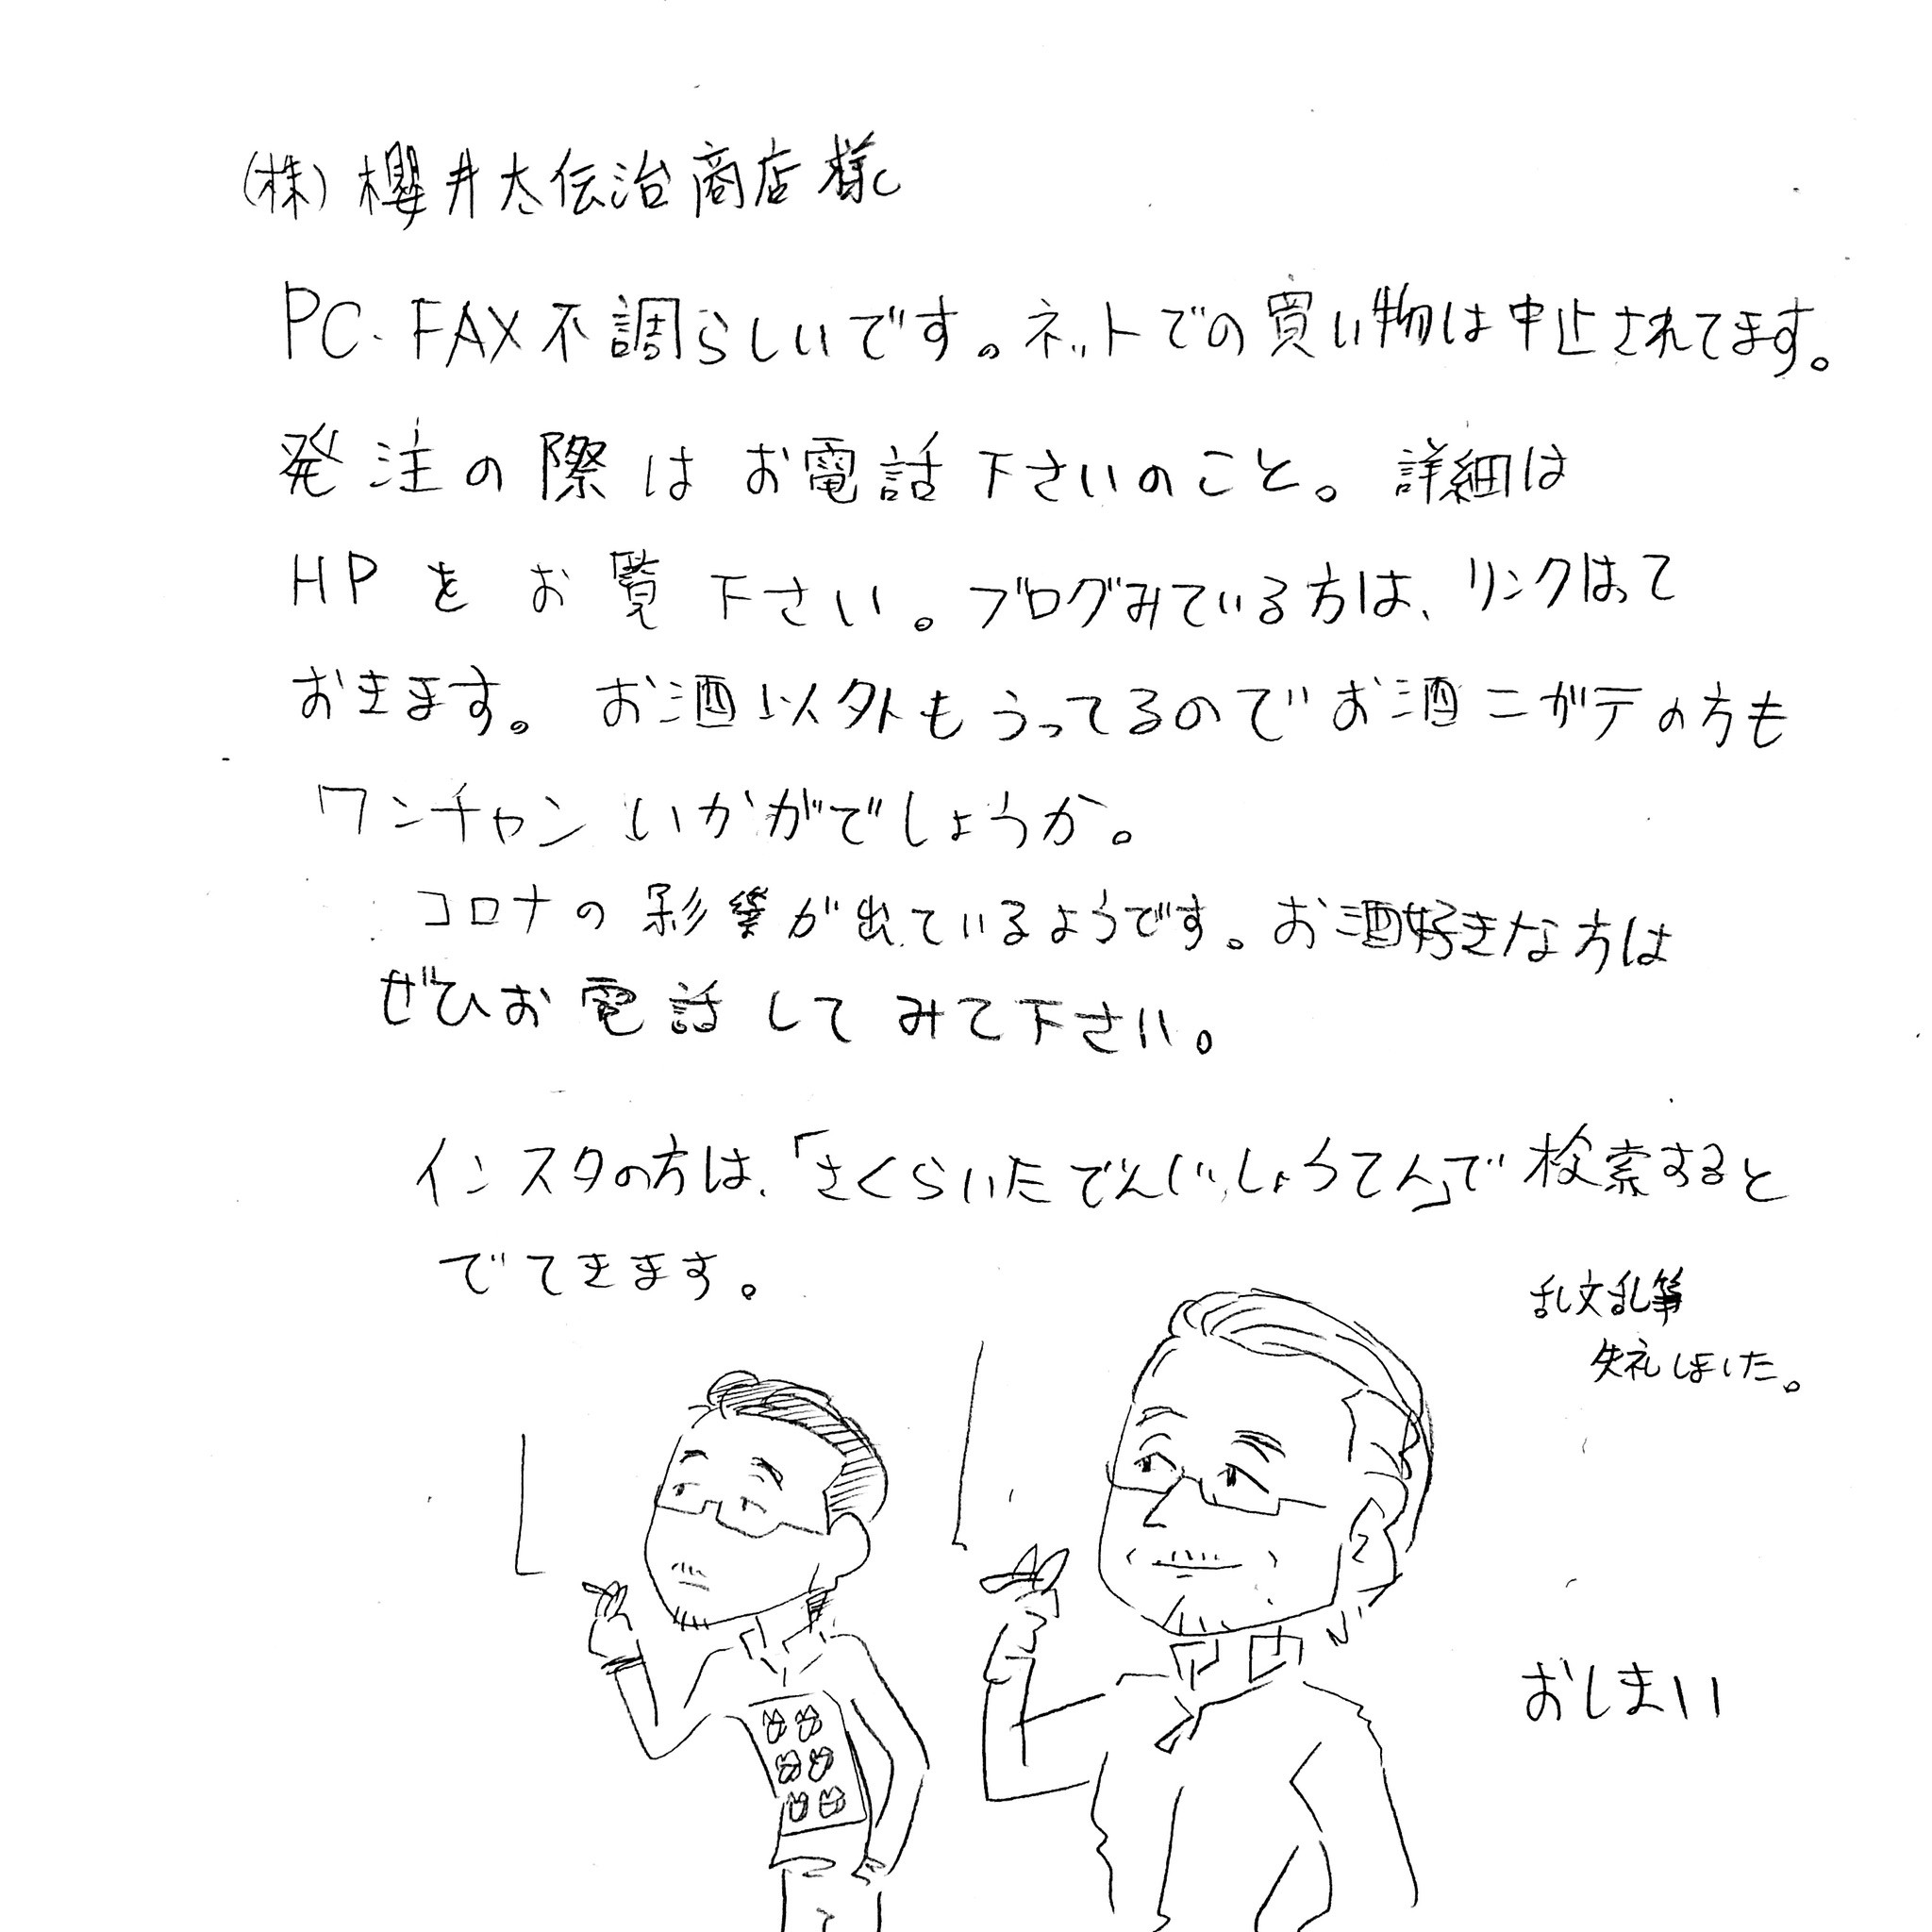 (株)櫻井太伝治商店様
PC、FAX不調らしいです。ネットでの買い物は中止されてます。
発注の際はお電話下さいのこと。詳細は
HPをお覧下さい。ブログみている方は、リンクはって
おきます。お酒以外もうってるのでお酒ニガテの方も
ワンチャンいかがでしょうか。
コロナの影響が出ているようです。お酒好きな方は
ぜひお電話してみて下さい。
インスタの方は、「さくらいたでんじしょうてん」で検索すると
でてきます。
乱文乱筆
失礼しました。
おしまい